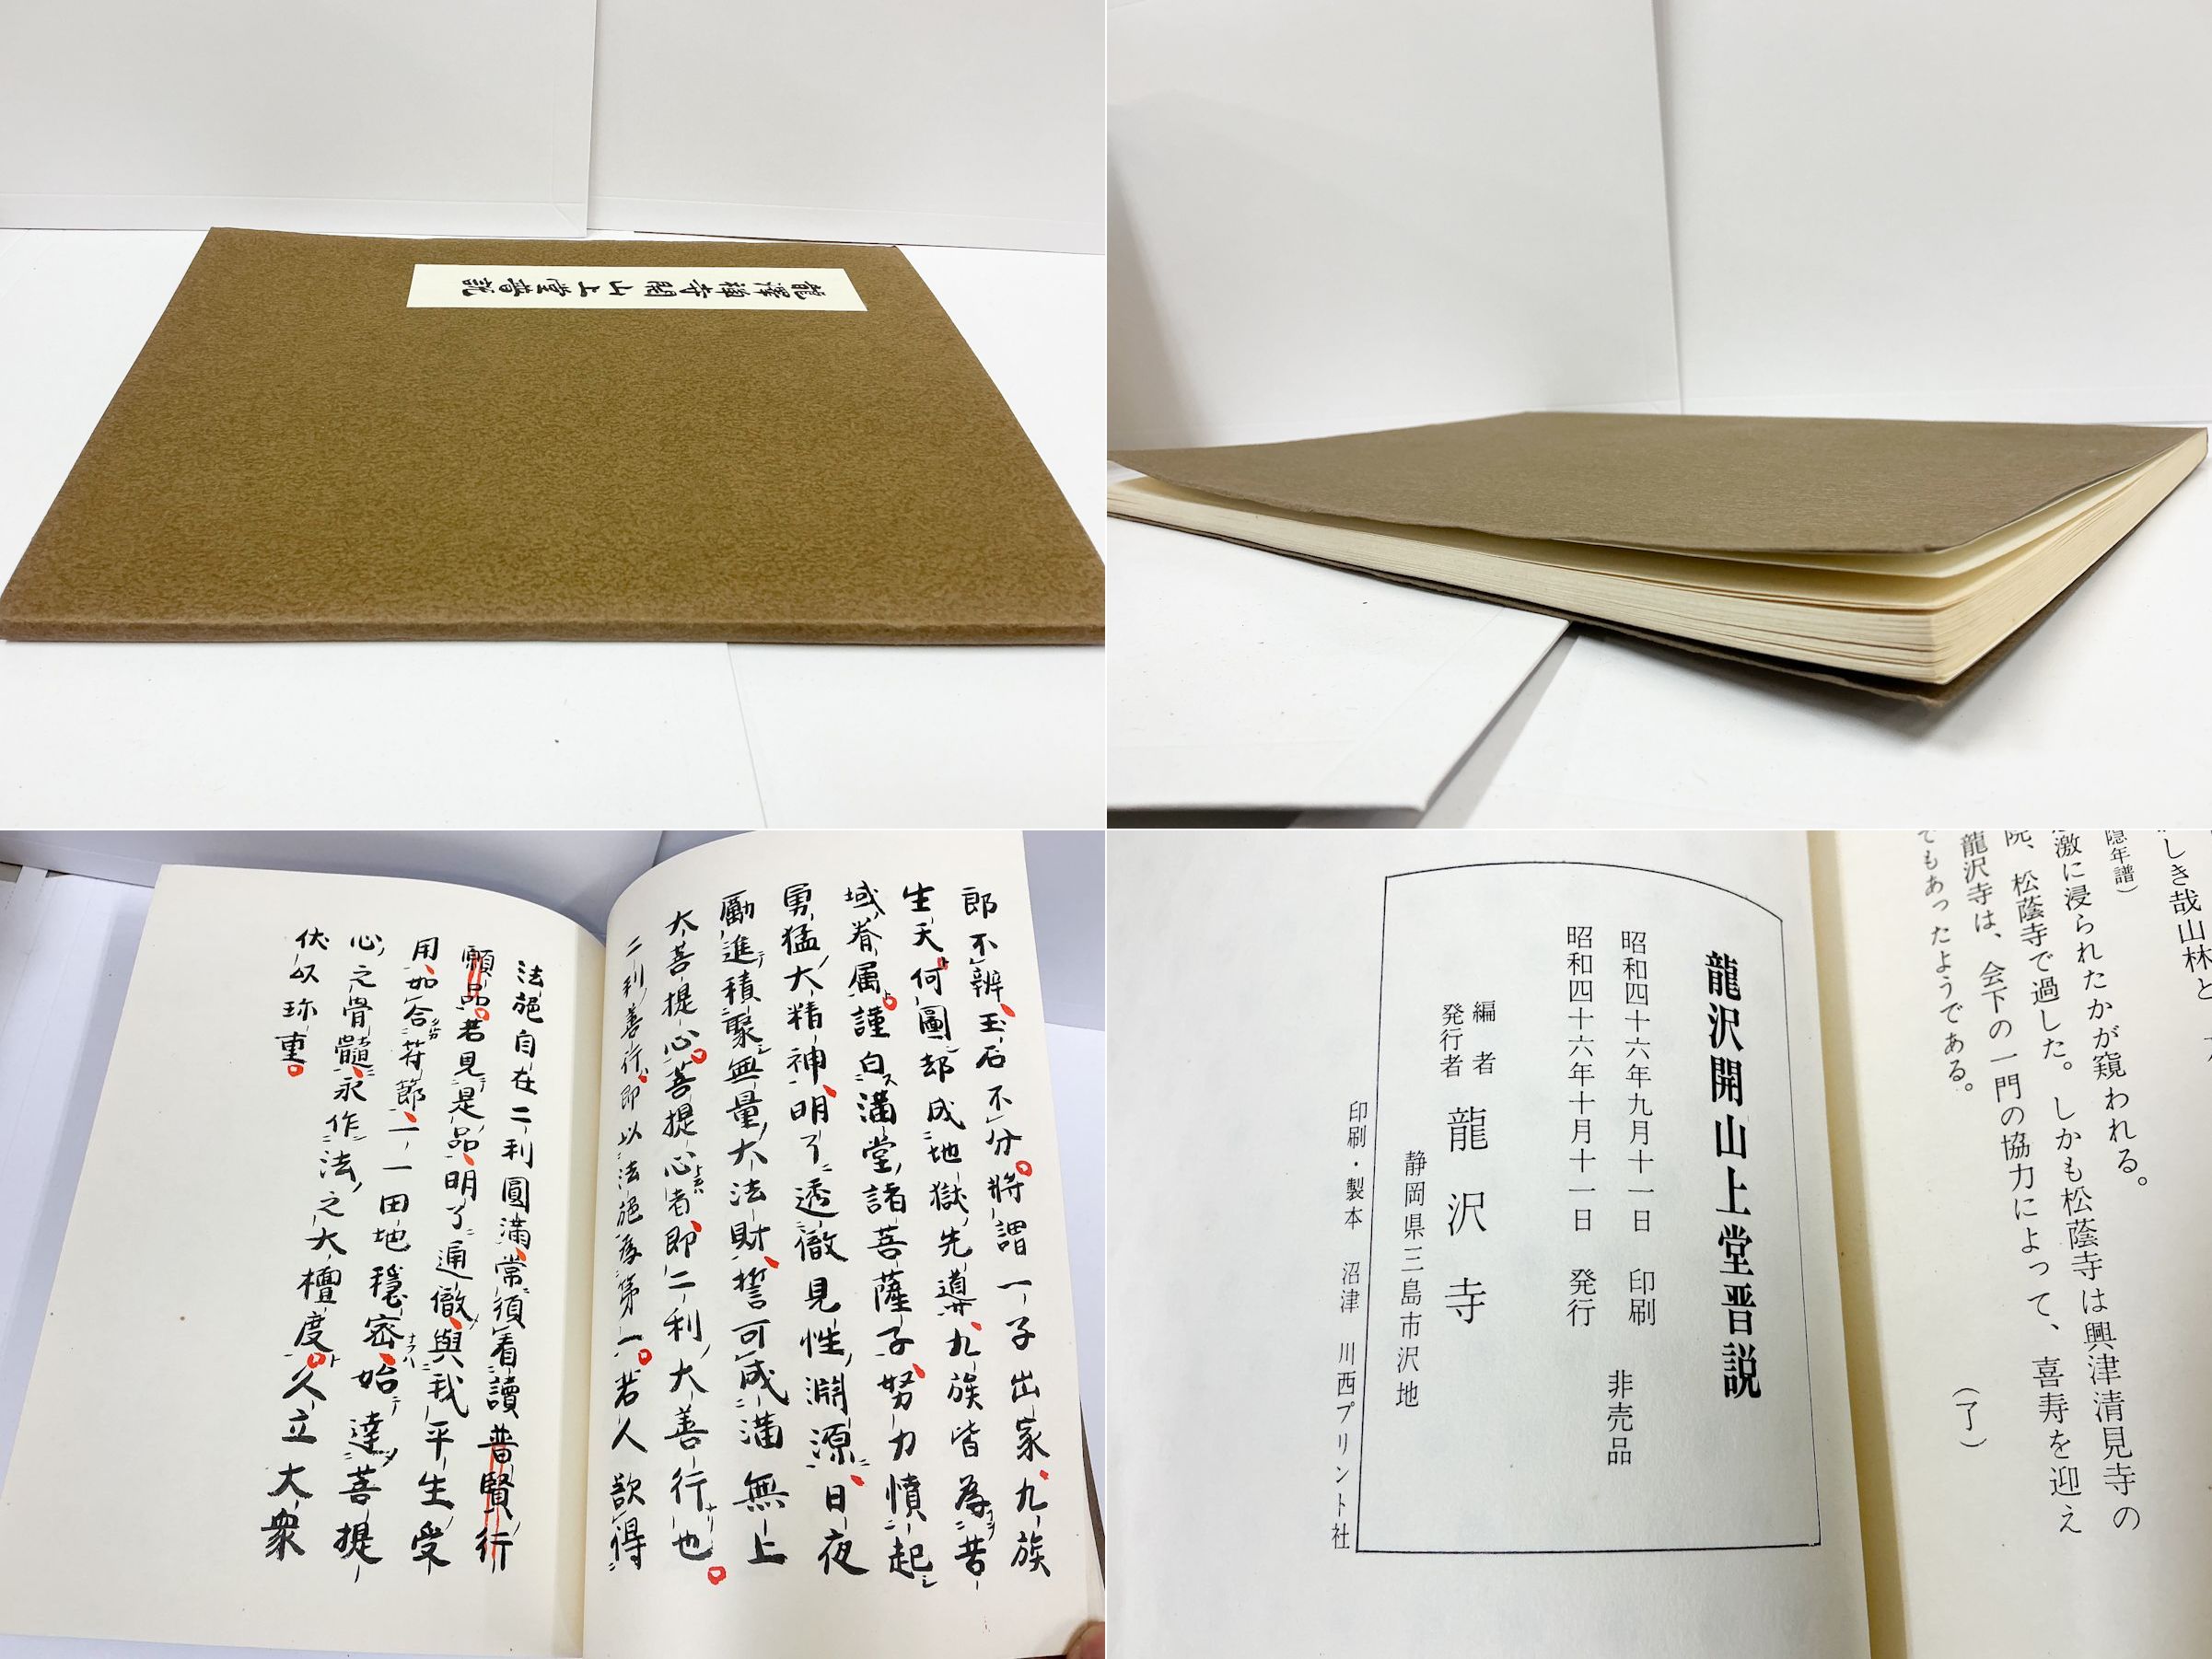 龍澤禅寺開山上堂普説
郎不辨玉石不分将謂一子出家九族
生天何圖却成地獄先導九族皆為苦
域眷属謹白満堂諸菩薩子努力憤起
勇猛大精神明了透徹見性淵源日夜
勵進積聚無量大法財誓可成満無上
大菩提心菩提心者即二利大善行也
二利善行即以法施為第一若人欲得
法施自在二利圓満常須看讀普賢行
願品若見是品明了通徹與我平生受
用如合符節一一田地穏密始達菩提
心之骨髓永作法之大檀度久立大衆
伏以珎重
しき哉山林と
隠年譜）
激に浸られたかが窺われる。
院、松蔭寺で過した。しかも松蔭寺は興津清見寺の
龍沢寺は、会下の一門の協力によって、喜寿を迎え
てもあったようである。
（了）
龍沢開山上堂晋説
昭和四十六年九月十一日　印刷
昭和四十六年十月十一日　発行
非売品
編者
発行者
龍沢寺
静岡県三島市沢地
印刷・製本　沼津　川西プリント社